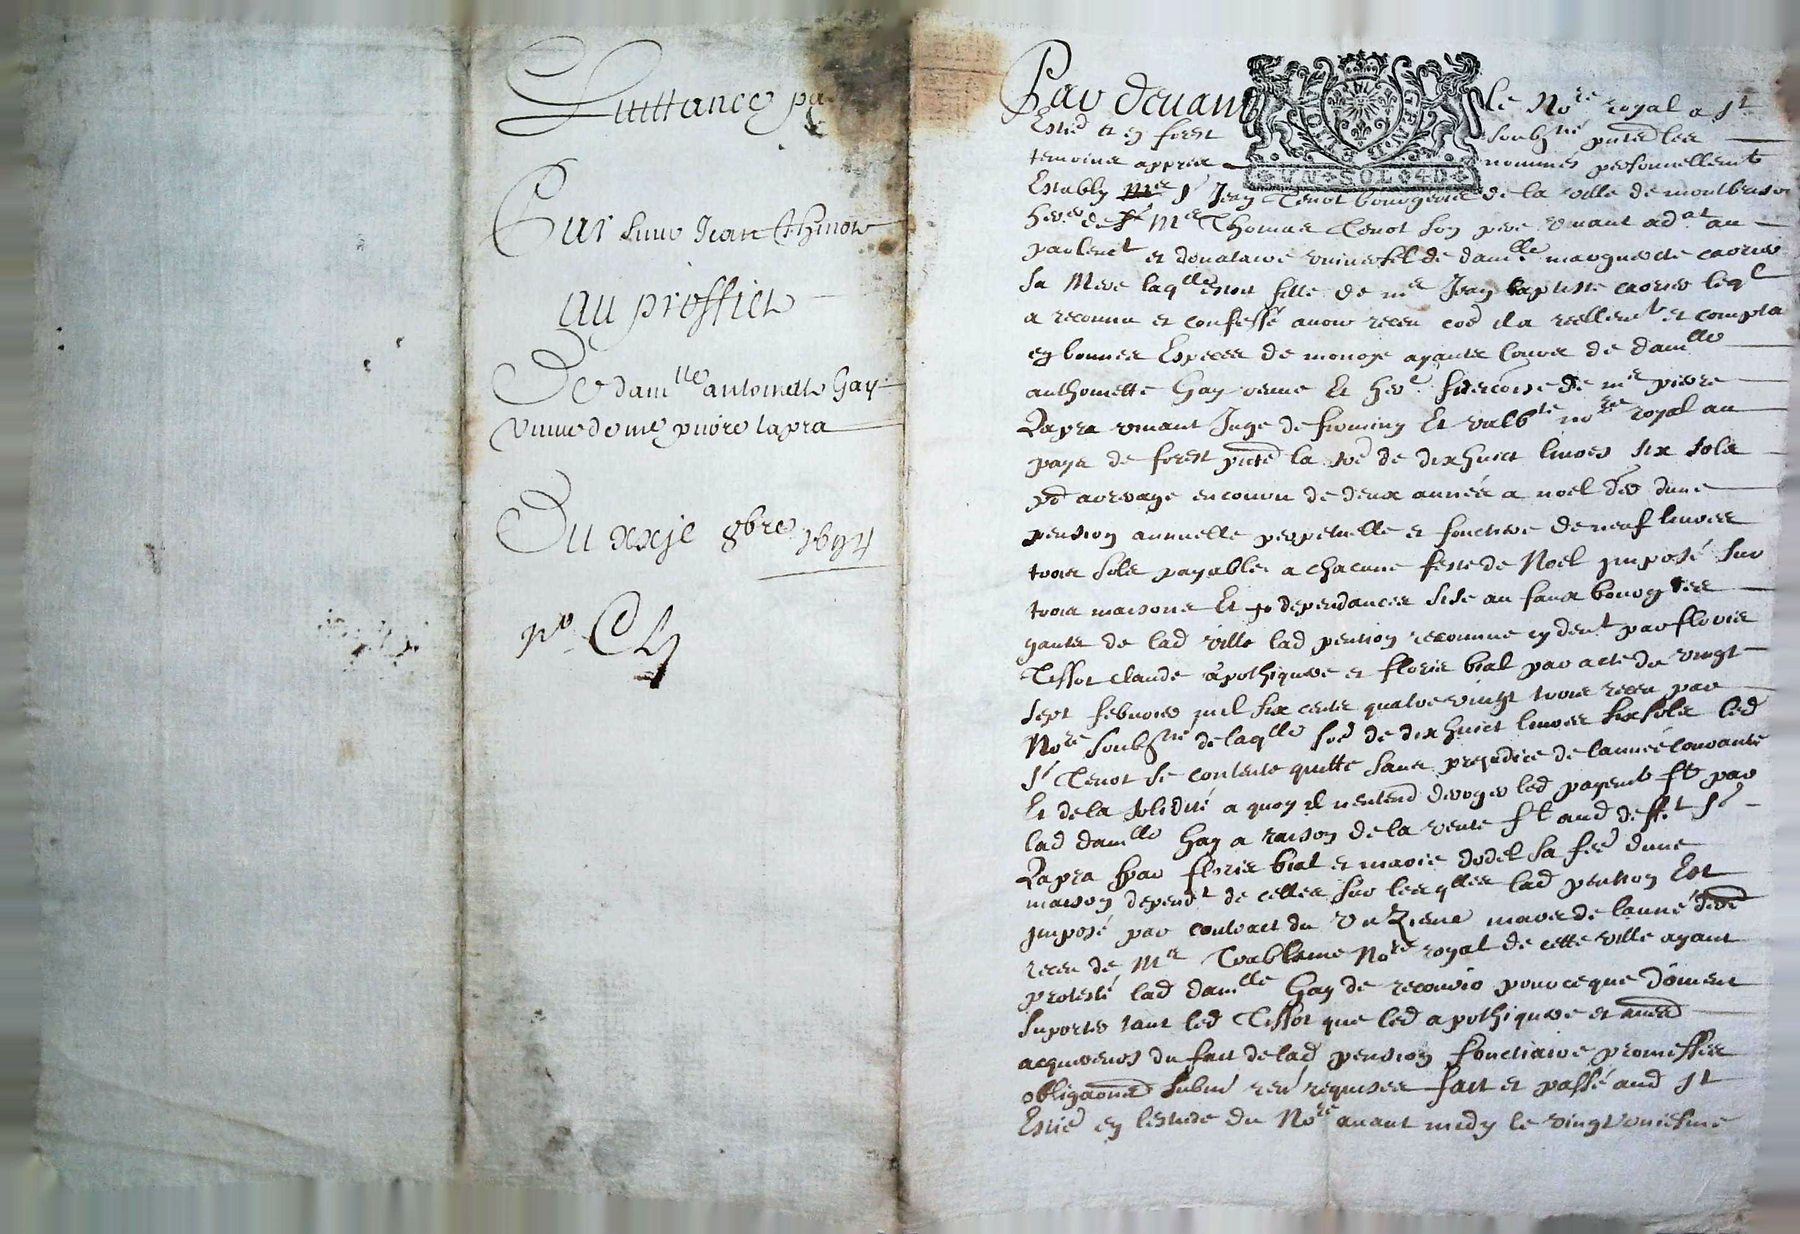 Quittance pa
Par sieur Jean Thenot
au proffict
De dam.lle antoinette Gay
veuve de me pierre lapra
Du xxje 8bre 1694
no. C
Par devant le Nore royal a St
Estie et en forest soubzne pnts les
temoins appres nommes personnellemt
Estably Sr Jean Tenot bourgeois de la ville de montbrison
here de Me Thomas Tenot son pere vivant adat au
parlemt et donataire universel de damlle marguerite
sa Mere laqlle estoit fille de me Jean baptiste leql
a reconnu et confessé avoir receu coe il a reellemt et compta
en bonnes Especes de monoye ayants cours de damlle
anthoinette Gay veuve Et here de me pierre
Lapra vivant Juge de Et nore royal au
pays de forest pnte la soe de dix huict livres six sols
pr arrerage encouru de deux années a noel der dune
pension annuelle perpetuelle et fonciere de neuf livres
trois sols payable a chacune feste de Noel imposé sur
trois maisons Et dependances sise au faux bourg
de lad ville lad pention reconnue par floris
Tissot claude apothiquere et floris bial par acte du vingt
sept febvrier mil six cents quatre vingt trois receu par
Nore soubzne de laqlle soe de dix huict livres six sols led
Sr Tenot se contente quitte sans prejudice de lannee courante
Et de la solidité a quoy il nentend deroger led payemt ft par
lad damlle Gay a raison de la vente ft aud defft Sr
Lapra par floris bial et marie dodel sa fee dune
maison dependt de celles sur lesqlles lad pention Est
imposé par contract du unzieme mars de lanné
receu de Me Nore royal de cette ville ayant
protesté lad damlle Gay de recouvrer pour ce que doivent
suporter tant led Tissot que led apothiquere et
acquereurs du fait de lad pension fonciaire promesses
obligaons requises fait et passé aud St
Estie en lestude du Nore avant midy le vingt uniesme
UN SOL 4D